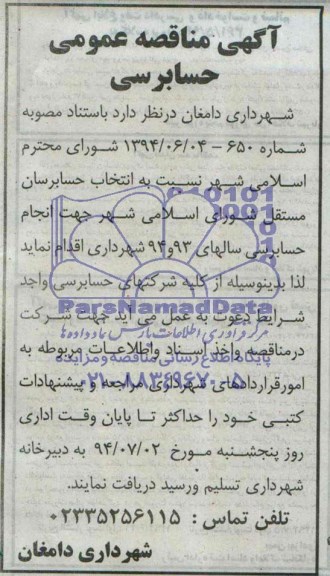 آگهی مناقصه عمومی
حسابرسی
شهرداری دامغان درنظر دارد باستناد مصوبه
شماره ۶۵۰ – ۱۳۹۴/۰۶/۰۴ شورای محترم
اسلامی شهر نسبت به انتخاب حسابرسان
مستقل شورای اسلامی شهر جهت انجام
حسابرسی سالهای ۹۳و۹۴ شهرداری اقدام نماید
لذا بدینوسیله از کلیه شرکتهای حسابرسی واجد
ParsNamadData
شرایط دعوت به عمل می آید جهت شرکت
مرکز فرآوری اطلاعات پارس نماد داده ها
درمناقصه واخذ اسناد واطلاعات مربوطه به
پایگاه اطلاع رسانی مناقصه و مزایده
امورقراردادهای شهرداری مراجعه و پیشنهادات
۰۲۱-۸۸۳۴۹۶۷۰-۵
کتبی خود را حداکثر تا پایان وقت اداری
روز پنجشنبه مورخ ۹۴/۰۷/۰۲ به دبیرخانه
شهرداری تسلیم ورسید دریافت نمایند.
تلفن تماس : ۰۲۳۳۵۲۵۶۱۱۵
شهرداری دامغان